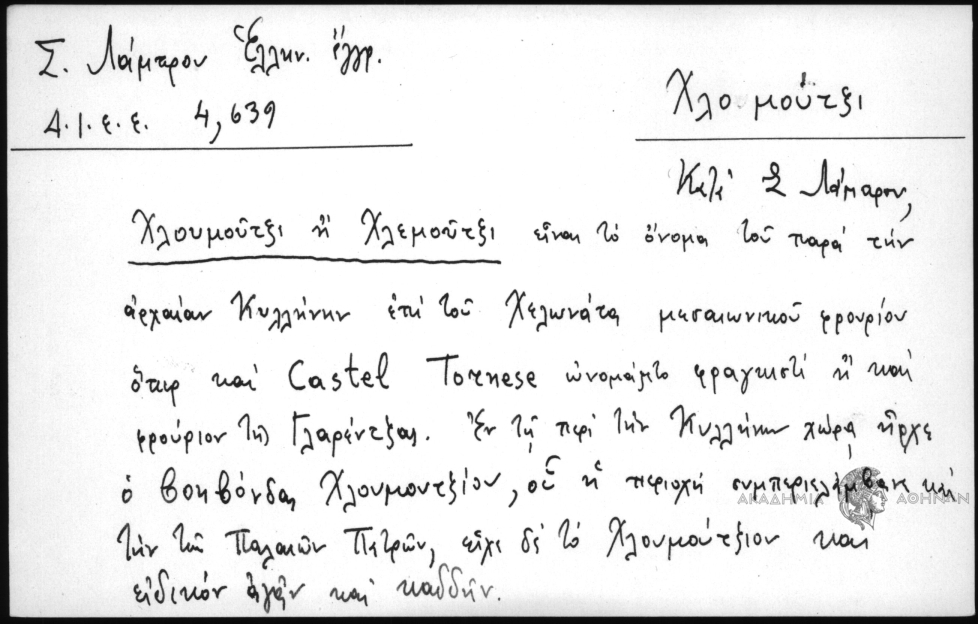 Σ. Λάμπρου Ἑλλην. ἔγγρ.
Δ.Ι.Ε.Ε. 4,639
Χλομούτξι
Κατὰ Σ Λάμπρον,
Χλουμοῦτξι ἢ Χλεμοῦτξι εἶναι τὸ ὄνομα τοῦ παρὰ τὴν
ἀρχαίαν Κυλλήνην ἐπὶ τοῦ Χελωνάτα μεσαιωνικοῦ φρουρίου
ὅπερ καὶ Castel Tornese ὠνομάζετο φραγκιστὶ ἢ καὶ
φρούριον τῆς Γλαρέντζας. Ἐν τῇ περὶ τὴν Κυλλήνην χώρᾳ ἦρχε
ὁ βοηβόνδας Χλουμουτξίου, οὗ ἡ περιοχὴ συμπεριελάμβανε καὶ
τὴν τῶν Παλαιῶν Πατρῶν, εἶχε δὲ τὸ Χλουμούτξιον καὶ
εἰδικὸν ἀγᾶν καὶ καδδῆν.
ΑΚΑΔΗΜΙΑ ΑΘΗΝΩΝ